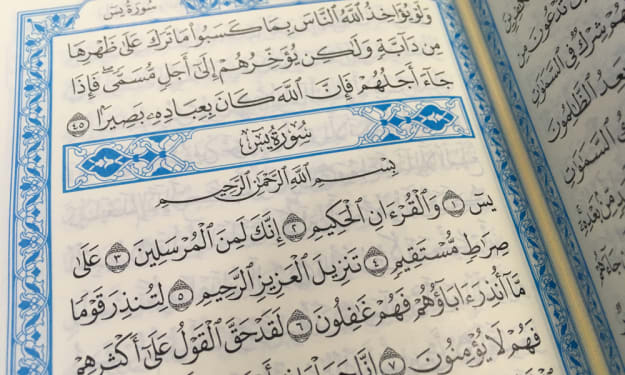 سُورَةُ يسٓ
وَلَوْ يُؤَاخِذُ ٱللَّهُ ٱلنَّاسَ بِمَا كَسَبُوا۟ مَا تَرَكَ عَلَىٰ ظَهْرِهَا
مِن دَآبَّةٍ وَلَٰكِن يُؤَخِّرُهُمْ إِلَىٰٓ أَجَلٍ مُّسَمًّى ۖ فَإِذَا
جَآءَ أَجَلُهُمْ فَإِنَّ ٱللَّهَ كَانَ بِعِبَادِهِۦ بَصِيرًۢا ٤٥
سُورَةُ يسٓ
بِسْمِ ٱللَّهِ ٱلرَّحْمَٰنِ ٱلرَّحِيمِ
يسٓ ١ وَٱلْقُرْءَانِ ٱلْحَكِيمِ ٢ إِنَّكَ لَمِنَ ٱلْمُرْسَلِينَ ٣ عَلَىٰ
صِرَٰطٍ مُّسْتَقِيمٍ ٤ تَنزِيلَ ٱلْعَزِيزِ ٱلرَّحِيمِ ٥ لِتُنذِرَ قَوْمًا
مَّآ أُنذِرَ ءَابَآؤُهُمْ فَهُمْ غَٰفِلُونَ ٦ لَقَدْ حَقَّ ٱلْقَوْلُ عَلَىٰٓ أَكْثَرِهِمْ
فَهُمْ لَا يُؤْمِنُونَ ٧ إِنَّا جَعَلْنَا
تَدْعُونَ مِن
شِرْكٌ فِى ٱلسَّمَٰوَٰتِ
يَعِدُ ٱلظَّٰلِمُونَ
ٱلسَّمَٰوَٰتِ
مِّنۢ بَعْدِهِۦٓ
جَآءَهُمْ